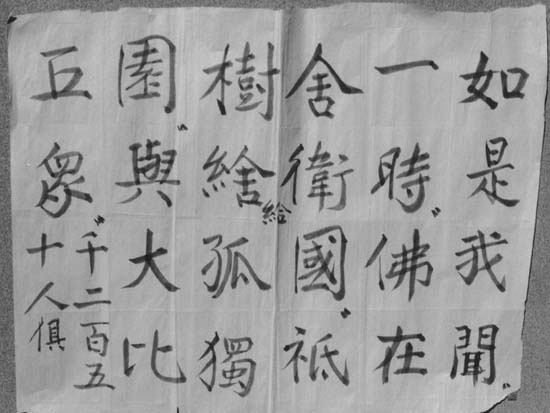 如是我聞、
一時、佛在
舍衛國、祇
樹給孤獨
園、與大比
丘眾、千二百五
十人俱